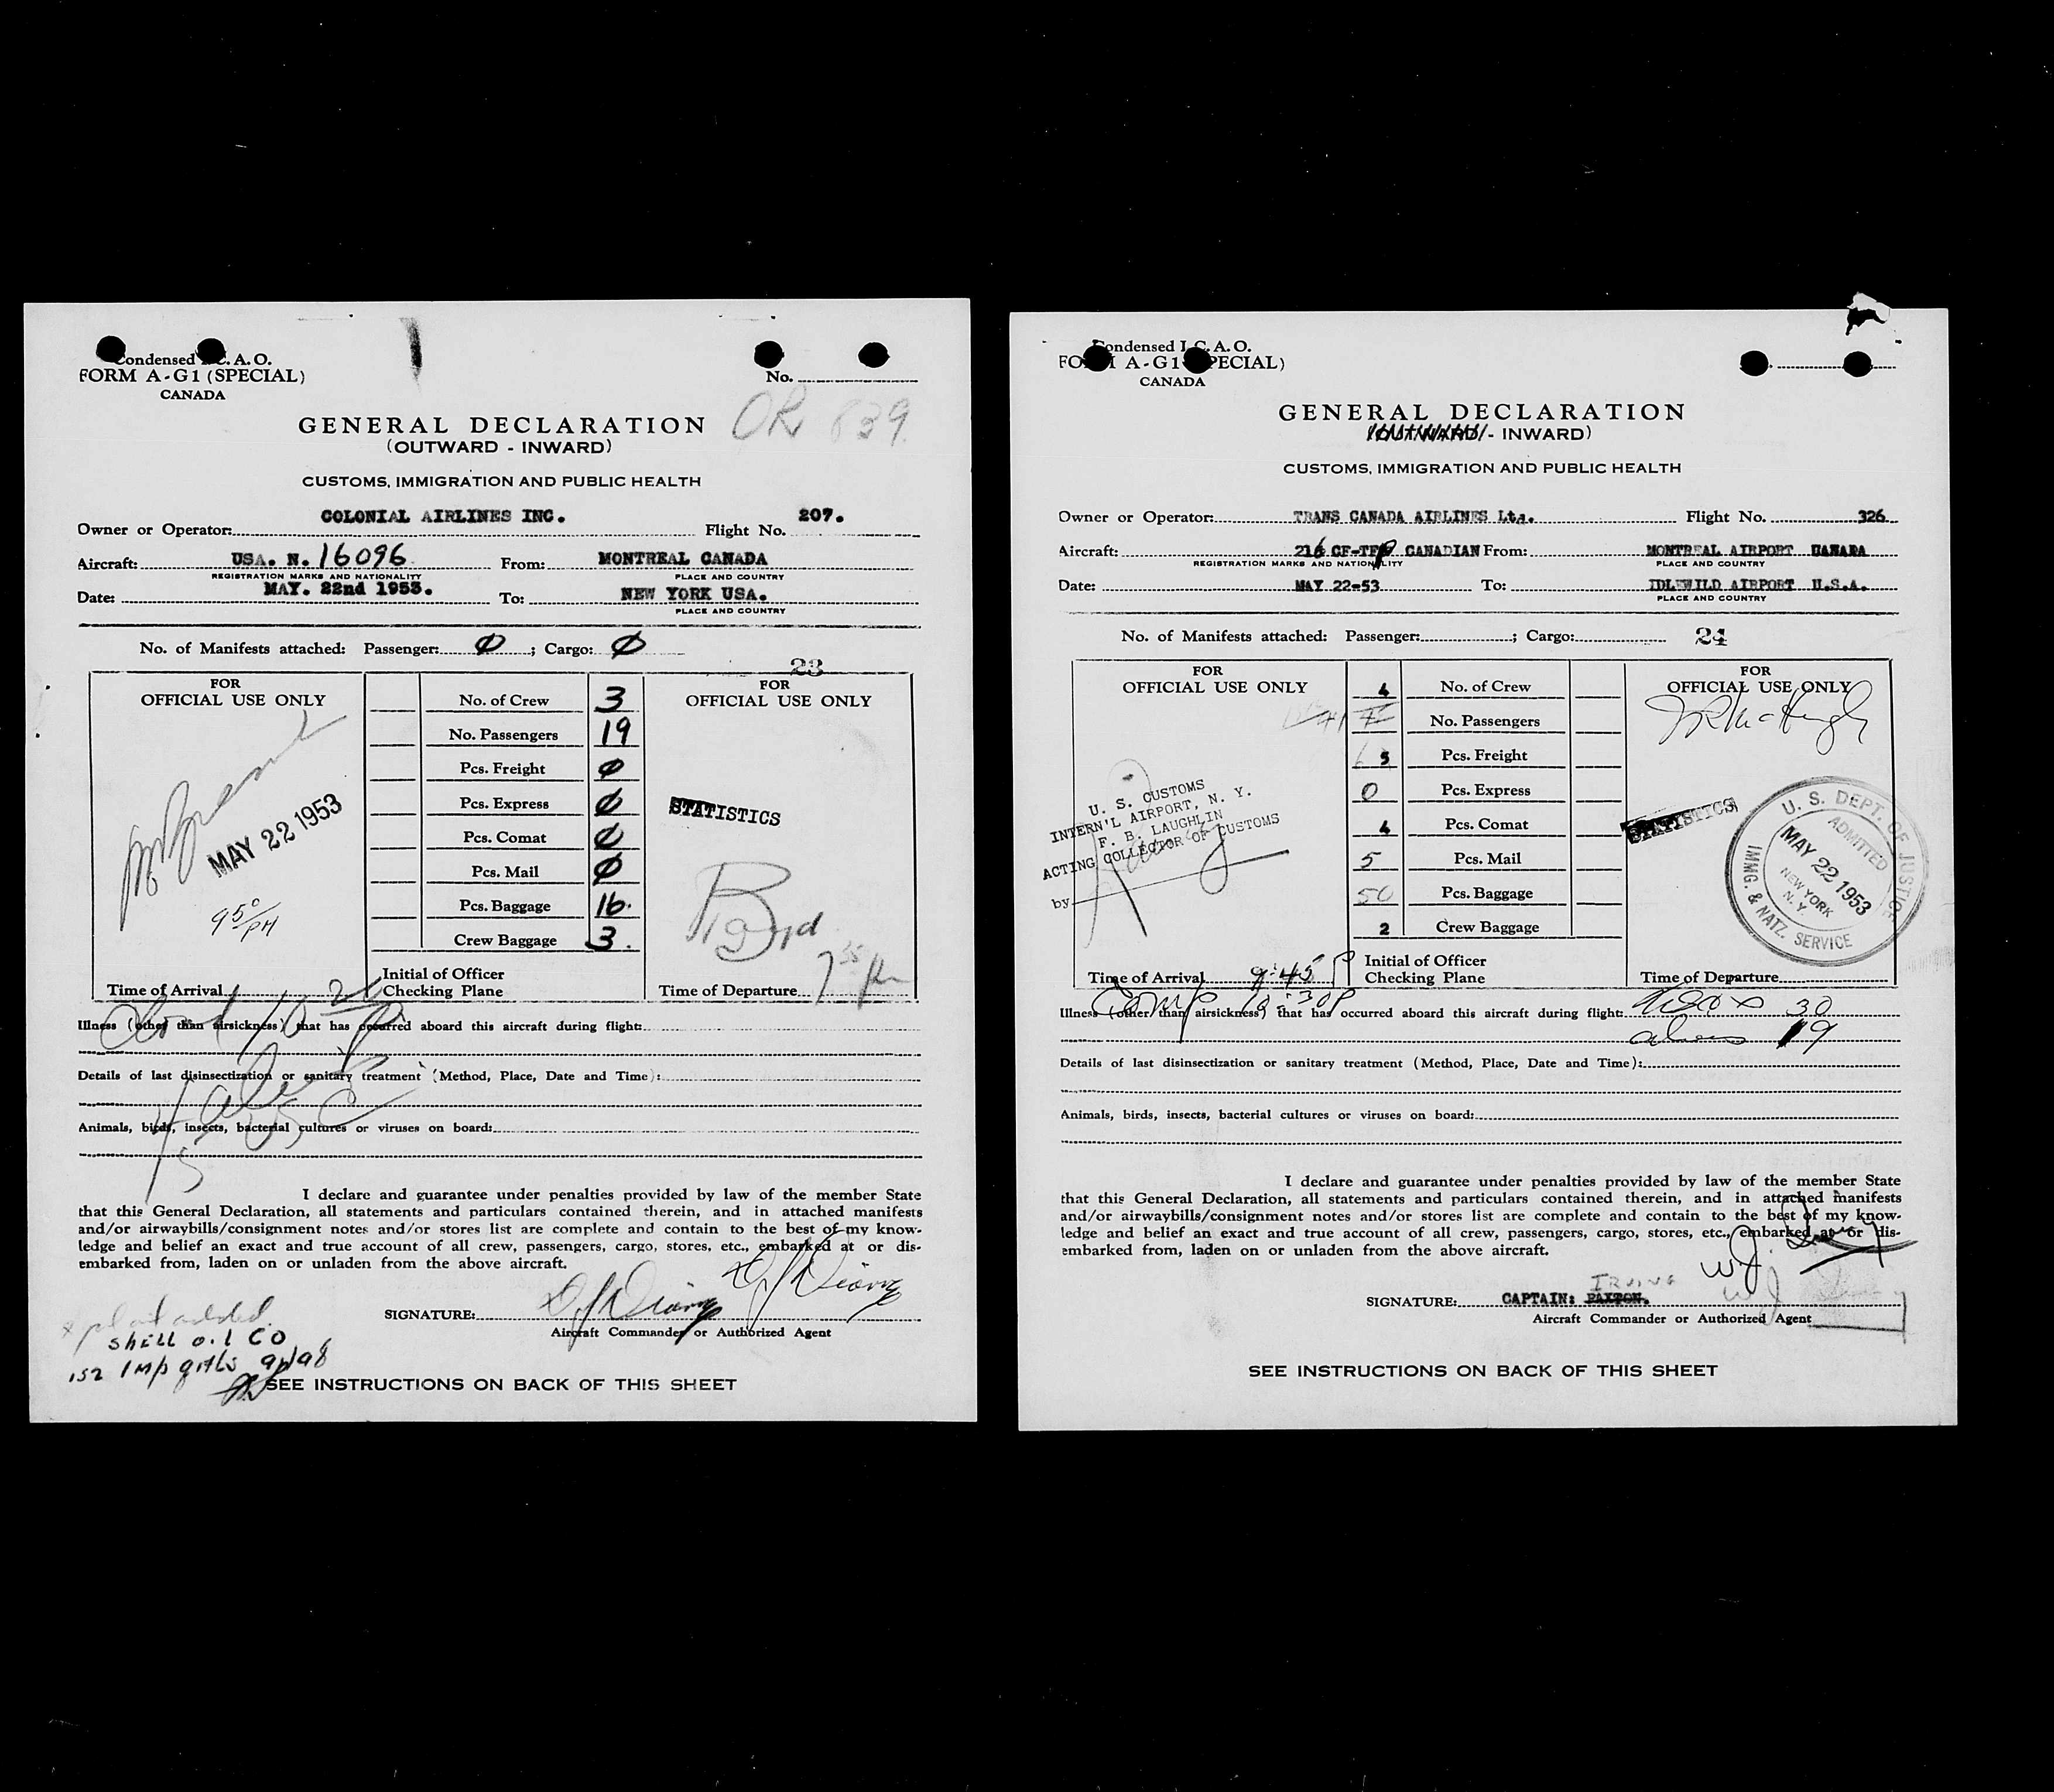 Condensed I.C.A.O.
FORM A-G1 (SPECIAL)
CANADA
No.
OR 839
GENERAL DECLARATION
(OUTWARD - INWARD)
CUSTOMS, IMMIGRATION AND PUBLIC HEALTH
Owner or Operator: COLONIAL AIRLINES INC. Flight No. 207.
Aircraft: USA. N. 16096 From: MONTREAL CANADA
REGISTRATION MARKS AND NATIONALITY PLACE AND COUNTRY
Date: MAY. 22nd 1953. To: NEW YORK USA.
PLACE AND COUNTRY
No. of Manifests attached: Passenger: 0 ; Cargo: 0
23
FOR
OFFICIAL USE ONLY
MAY 22 1953
9 50/PM
Time of Arrival
No. of Crew 3
No. Passengers 19
Pcs. Freight 0
Pcs. Express 0
Pcs. Comat 0
Pcs. Mail 0
Pcs. Baggage 16.
Crew Baggage 3.
Initial of Officer
Checking Plane
FOR
OFFICIAL USE ONLY
STATISTICS
Time of Departure 7 35 pm
Illness (other than airsickness) that has occurred aboard this aircraft during flight:
Details of last disinsectization or sanitary treatment (Method, Place, Date and Time):
Animals, birds, insects, bacterial cultures or viruses on board:
I declare and guarantee under penalties provided by law of the member State
that this General Declaration, all statements and particulars contained therein, and in attached manifests
and/or airwaybills/consignment notes and/or stores list are complete and contain to the best of my know-
ledge and belief an exact and true account of all crew, passengers, cargo, stores, etc., embarked at or dis-
embarked from, laden on or unladen from the above aircraft.
SIGNATURE:
Aircraft Commander or Authorized Agent
added
shell oil CO
152 Imp
SEE INSTRUCTIONS ON BACK OF THIS SHEET
Condensed I.C.A.O.
FORM A-G1 (SPECIAL)
CANADA
GENERAL DECLARATION
(OUTWARD - INWARD)
CUSTOMS, IMMIGRATION AND PUBLIC HEALTH
Owner or Operator: TRANS CANADA AIRLINES Ltd. Flight No. 326
Aircraft: 216 CF-TFP CANADIAN From: MONTREAL AIRPORT CANADA
REGISTRATION MARKS AND NATIONALITY PLACE AND COUNTRY
Date: MAY 22-53 To: IDLEWILD AIRPORT U.S.A.
PLACE AND COUNTRY
No. of Manifests attached: Passenger: ; Cargo: 24
FOR
OFFICIAL USE ONLY
U. S. CUSTOMS
INTERN'L AIRPORT, N. Y.
F. B. LAUGHLIN
ACTING COLLECTOR OF CUSTOMS
by
Time of Arrival 9:45 P
Comp 10:30P
4 No. of Crew
No. Passengers
5 Pcs. Freight
0 Pcs. Express
4 Pcs. Comat
5 Pcs. Mail
50 Pcs. Baggage
2 Crew Baggage
Initial of Officer
Checking Plane
FOR
OFFICIAL USE ONLY
STATISTICS
U. S. DEPT. OF JUSTICE
ADMITTED
MAY 22 1953
NEW YORK
N. Y.
IMMG. & NATZ. SERVICE
Time of Departure
Illness (other than airsickness) that has occurred aboard this aircraft during flight: 30
aliens 19
Details of last disinsectization or sanitary treatment (Method, Place, Date and Time):
Animals, birds, insects, bacterial cultures or viruses on board:
I declare and guarantee under penalties provided by law of the member State
that this General Declaration, all statements and particulars contained therein, and in attached manifests
and/or airwaybills/consignment notes and/or stores list are complete and contain to the best of my know-
ledge and belief an exact and true account of all crew, passengers, cargo, stores, etc., embarked at or dis-
embarked from, laden on or unladen from the above aircraft.
IRVING
SIGNATURE: CAPTAIN: PAXTON.
Aircraft Commander or Authorized Agent
SEE INSTRUCTIONS ON BACK OF THIS SHEET